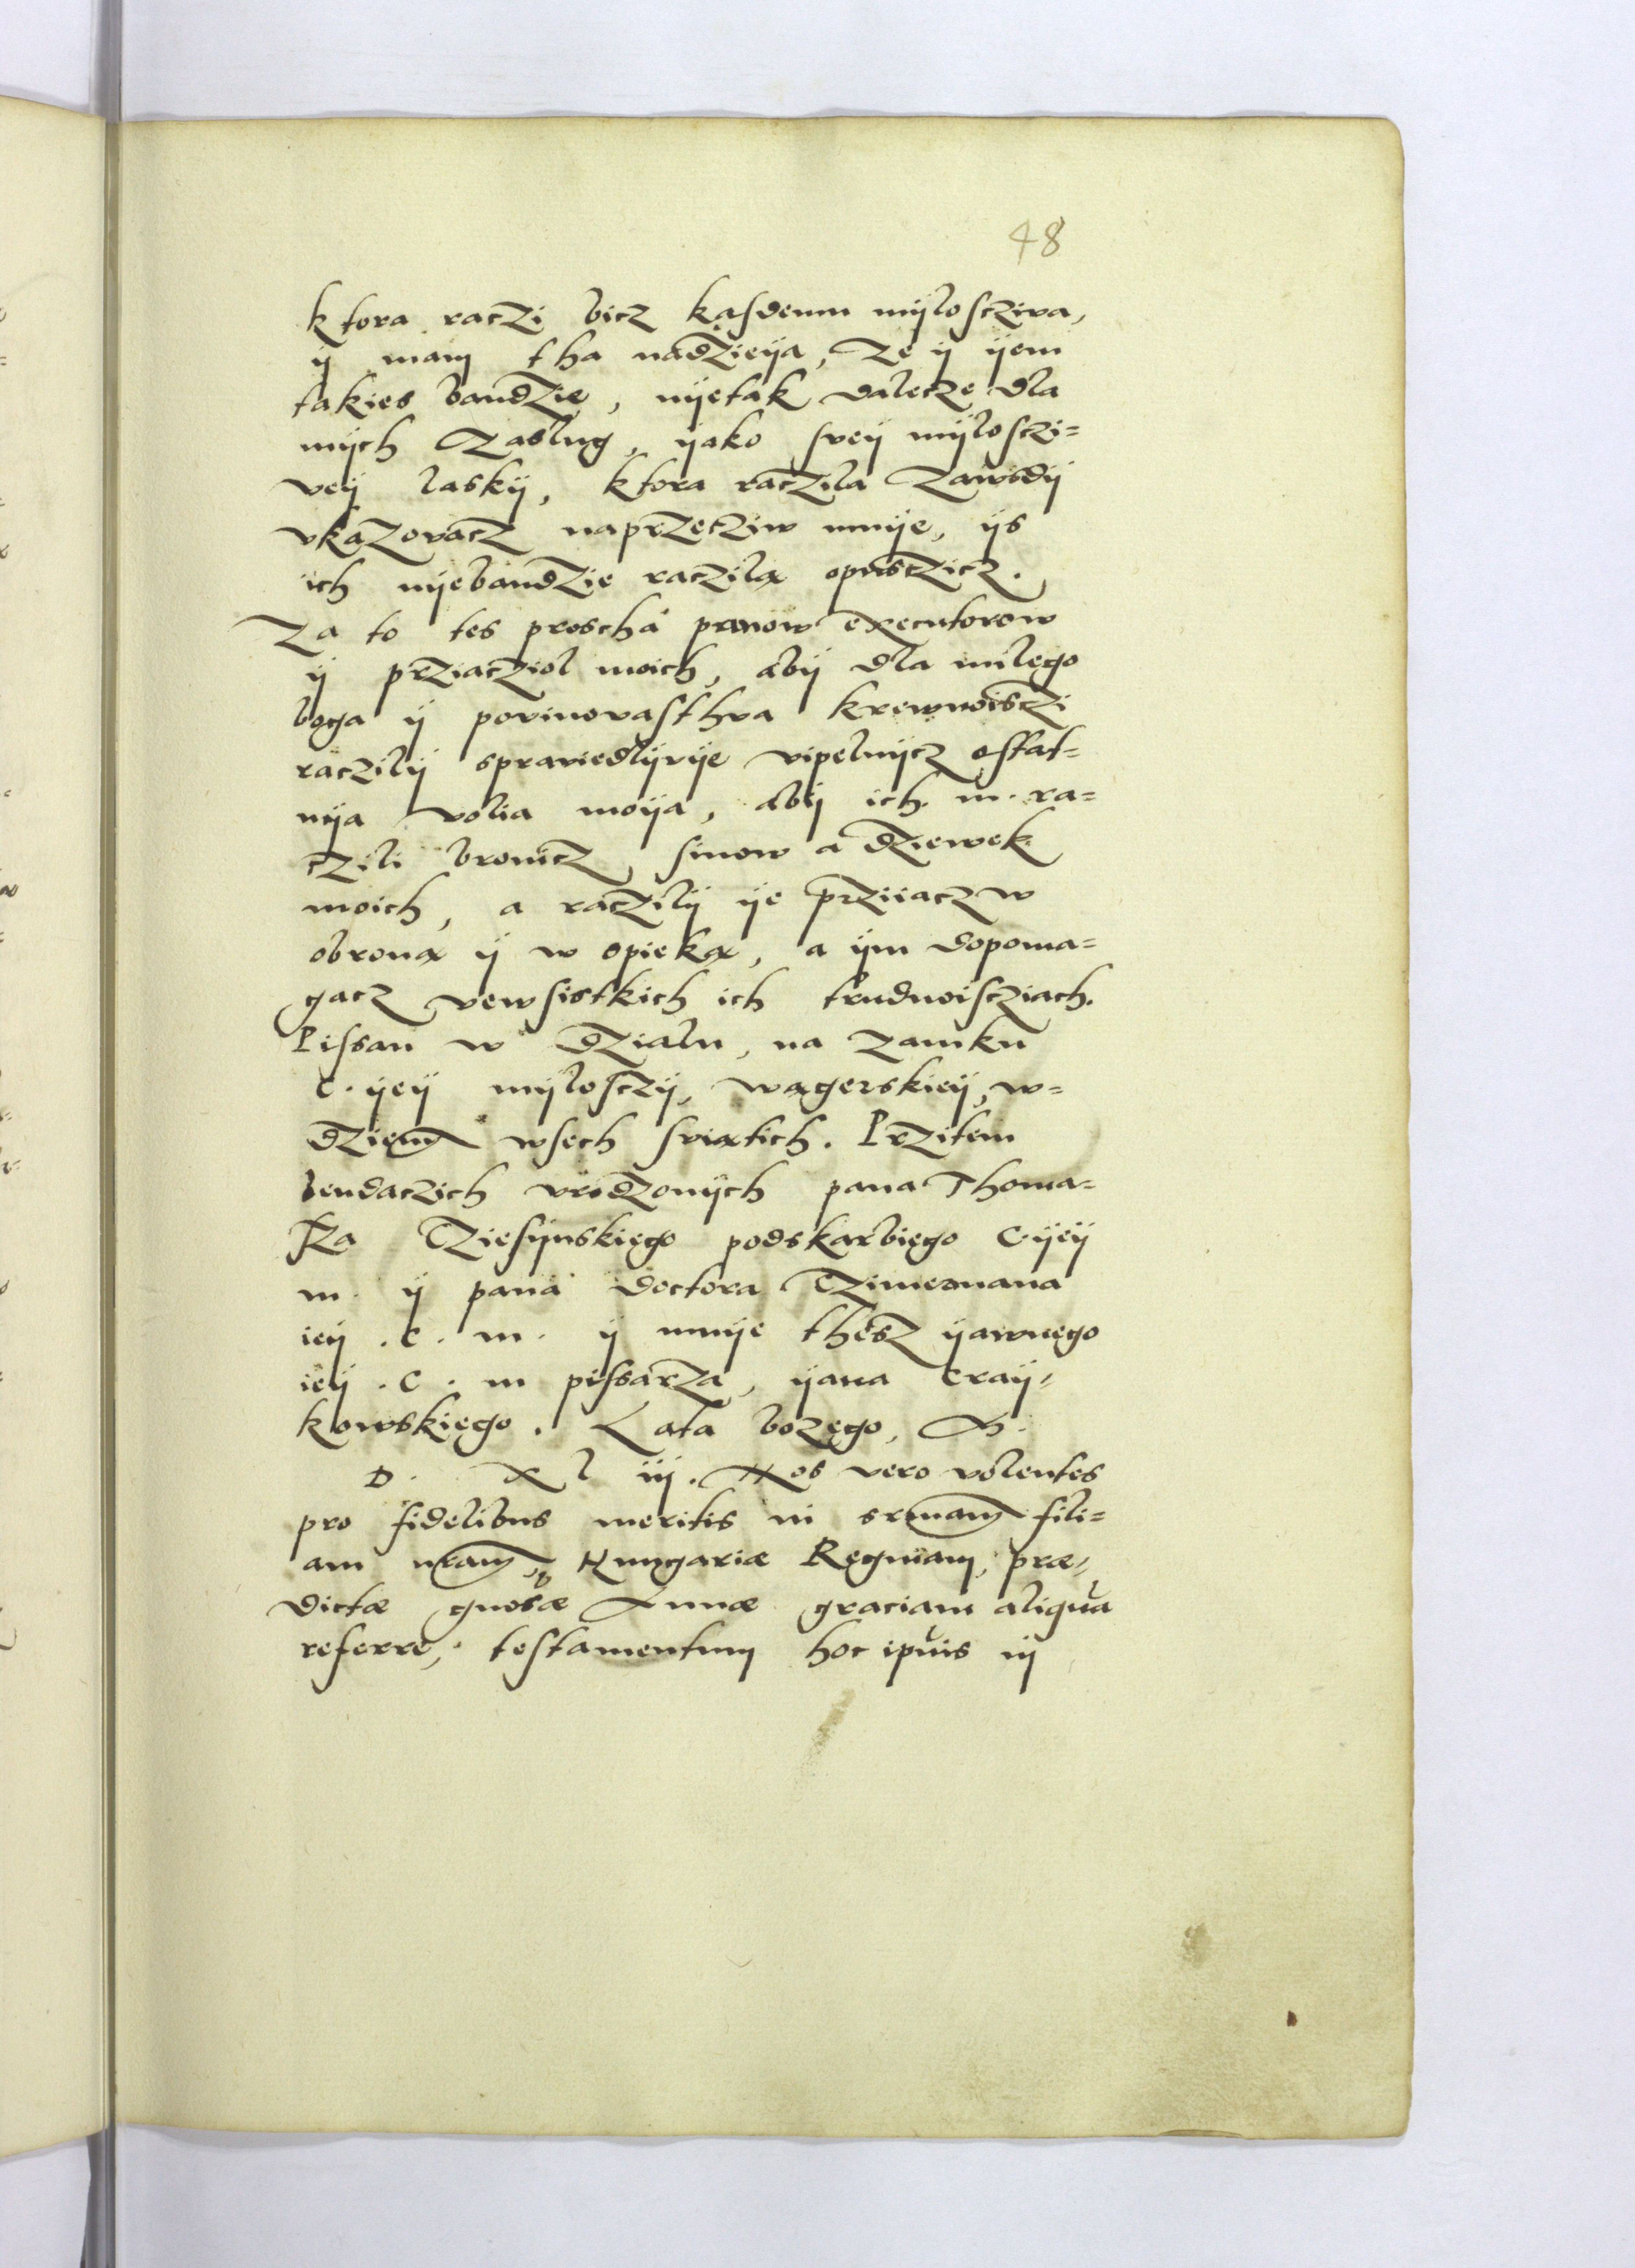 48
ktora raczi bicz kasdemu mÿlosczira,
ÿ mam tha nadzieÿa, Ze ÿ ÿem
takies bandzie, nÿetak dalecze dla
mÿch Zaslug, ÿako svey mÿloszi=
veÿ laskÿ, ktora raczila zawsdÿ
vkazovacz naprzecziw mnÿe, ÿs
ich nÿebandzie raczila opusczicz.
Za to tes proscha panow executorow
ÿ prziacziol moich, abÿ dla milego
boga ÿ povinovasthva krewnoisczi
raczilÿ spraviedlÿvÿe vipelnÿcz ostat=
nÿa volia moÿa, abÿ ich m. ra=
czili bronicz sinow a dziewek
moich, a raczilÿ ÿe prziiacz w
obronæ ÿ w opiekæ, a ÿm dopoma=
gacz vewsistkich ich trudnoiscziach.
Pissan w Dzialu, na zamku
C. ÿeÿ mÿlosczÿ, wægerskieÿ, w=
dzien wsech sviætich. Przitem
bendaczich vrodzonÿch pana Thoma=
sza Cziesÿnskiego podskarbiego C. ÿeÿ
m. ÿ pana doctora Czimermana
ieÿ . C . m . ÿ mnÿe thesz ÿawnego
ieÿ . C . m pissarza, ÿana Craÿ,
kowskiego. Lata bozego, M.
D. X l iij. Nos vero volentes
pro fidelibus meritis in srmam fili=
am nram, Hungariæ Reginam, præ,
dictæ gnosæ Annæ graciam aliqua
referre, testamentum hoc ipuis in